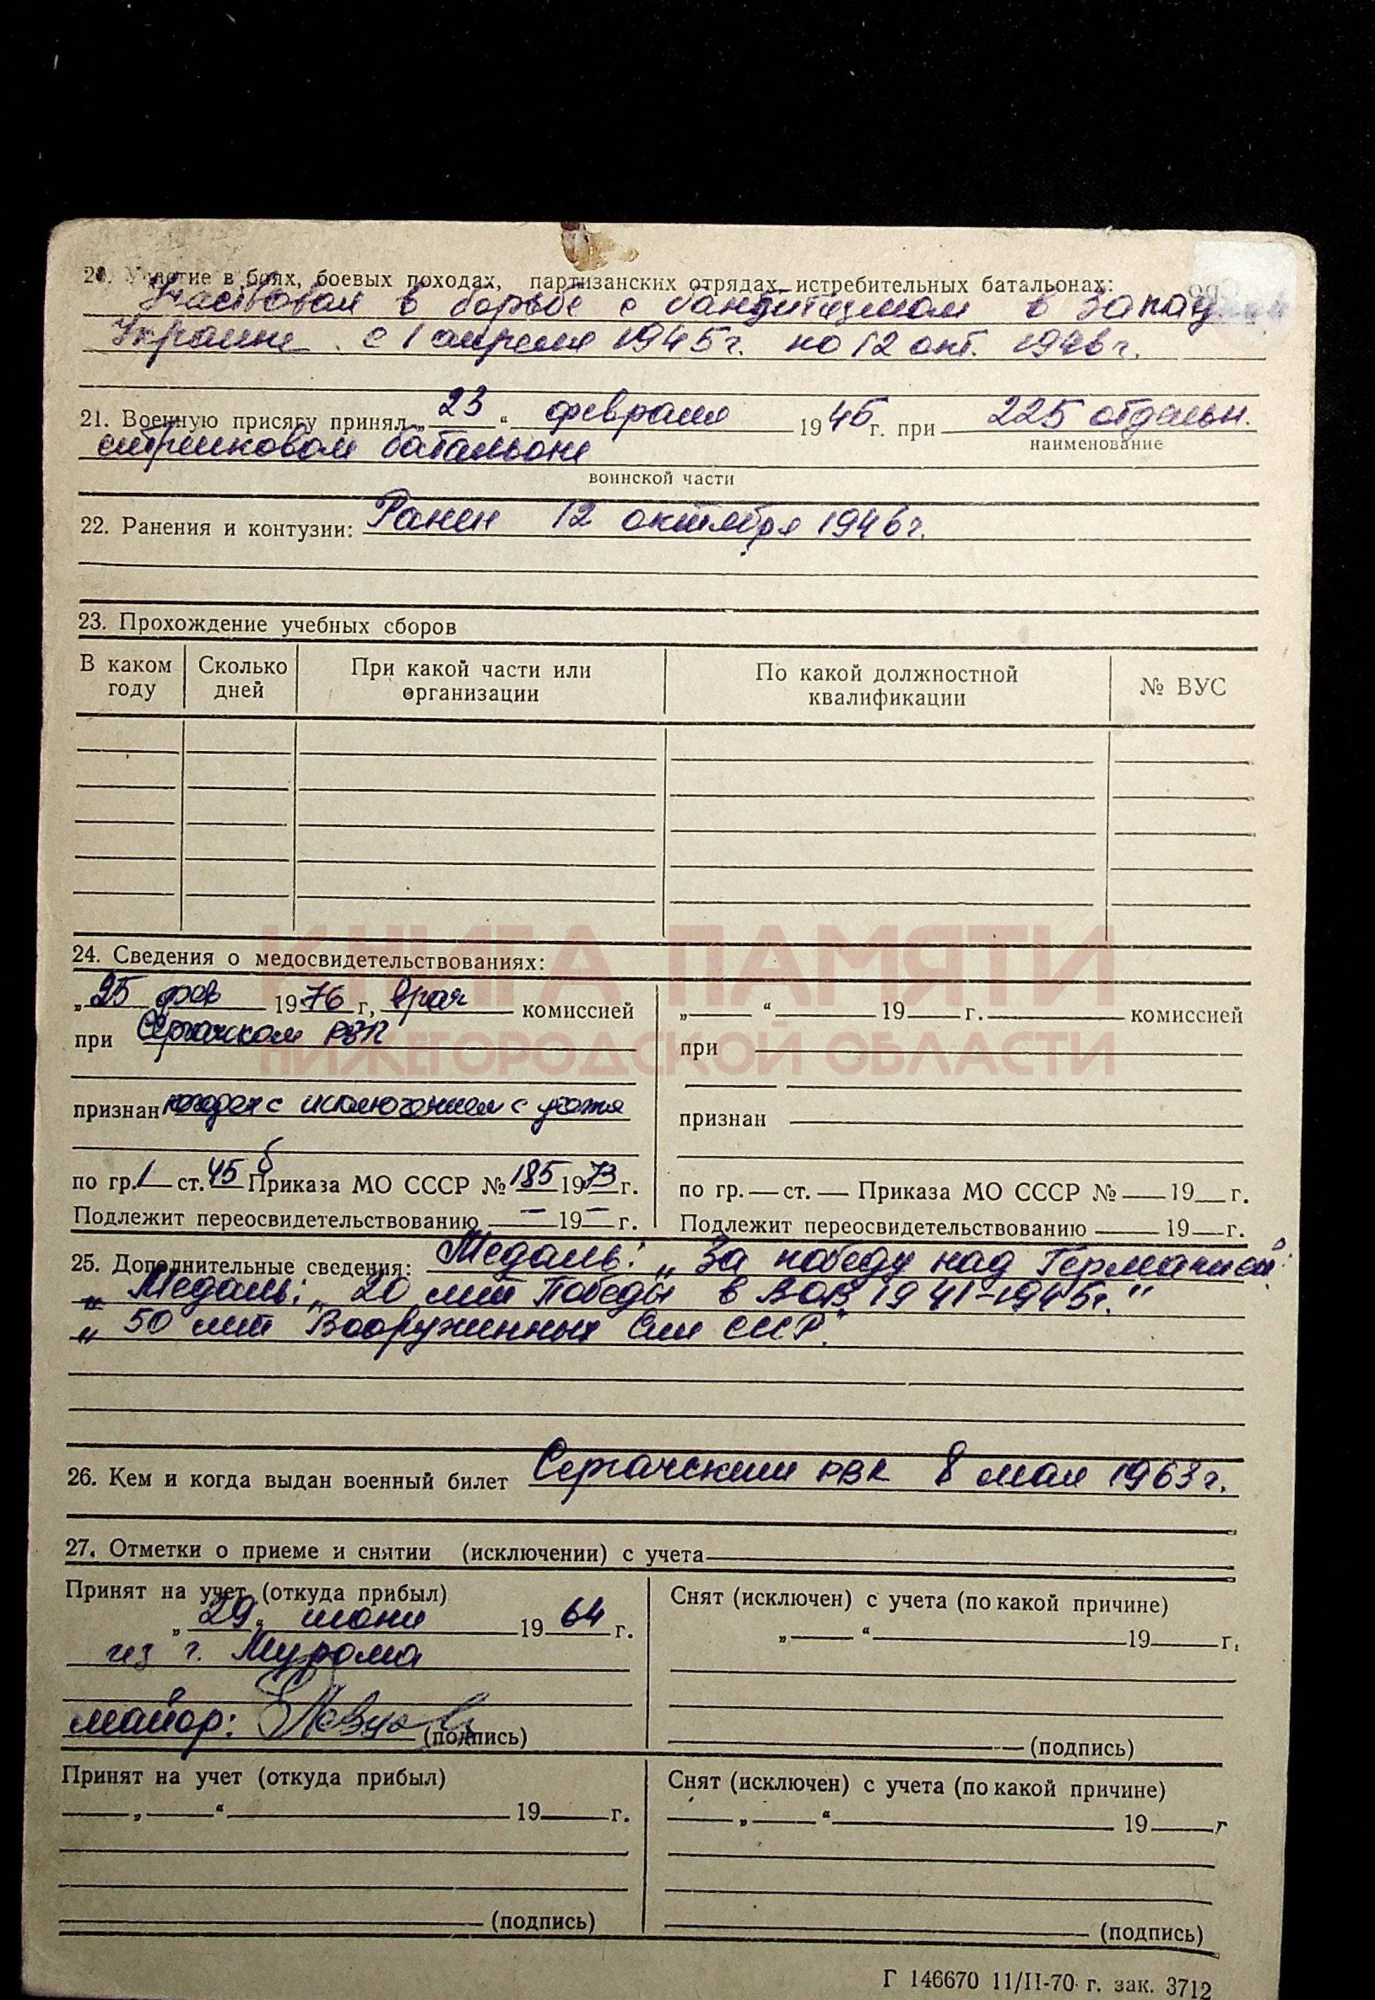 20. Участие в боях, боевых походах, партизанских отрядах, истребительных батальонах:
Участвовал в борьбе с бандитизмом в Западной
Украине с 1 апреля 1945 г. по 12 окт. 1946 г.
21. Военную присягу принял „23“ февраля 1945 г. при 225 отдельн.
наименование
стрелковом батальоне
воинской части
22. Ранения и контузии: Ранен 12 октября 1946 г.
23. Прохождение учебных сборов
В каком году Сколько дней При какой части или организации По какой должностной квалификации № ВУС
КНИГА ПАМЯТИ
НИЖЕГОРОДСКОЙ ОБЛАСТИ
24. Сведения о медосвидетельствованиях:
„25 фев 1976 г, врач комиссией
при Сергачском РВК
признан негоден с исключением с учета
по гр. 1 ст. 45 б Приказа МО СССР № 185 1973 г.
Подлежит переосвидетельствованию — 19— г.
„ “ 19 г. комиссией
при
признан
по гр. — ст. — Приказа МО СССР № 19 г.
Подлежит переосвидетельствованию 19 г.
25. Дополнительные сведения: Медаль: „За победу над Германией"
„Медаль: „20 лет Победы в ВОВ 1941-1945г."
„50 лет Вооруженных Сил СССР"
26. Кем и когда выдан военный билет Сергачским РВК 8 мая 1963 г.
27. Отметки о приеме и снятии (исключении) с учета
Принят на учет (откуда прибыл)
„29“ июня 1964 г.
из г. Мурома
майор:
(подпись)
Снят (исключен) с учета (по какой причине)
„ “ 19 г.
(подпись)
Принят на учет (откуда прибыл)
„ “ 19 г.
(подпись)
Снят (исключен) с учета (по какой причине)
„ “ 19 г
(подпись)
Г 146670 11/II-70 г. зак. 3712